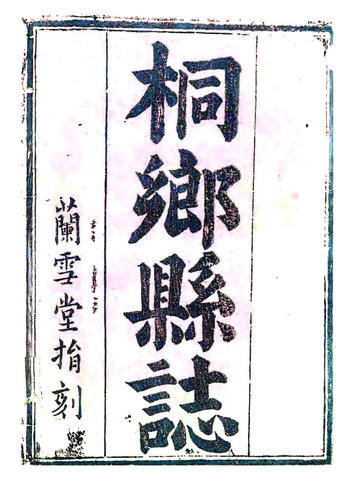 桐鄉縣誌
蘭雪堂捐刻